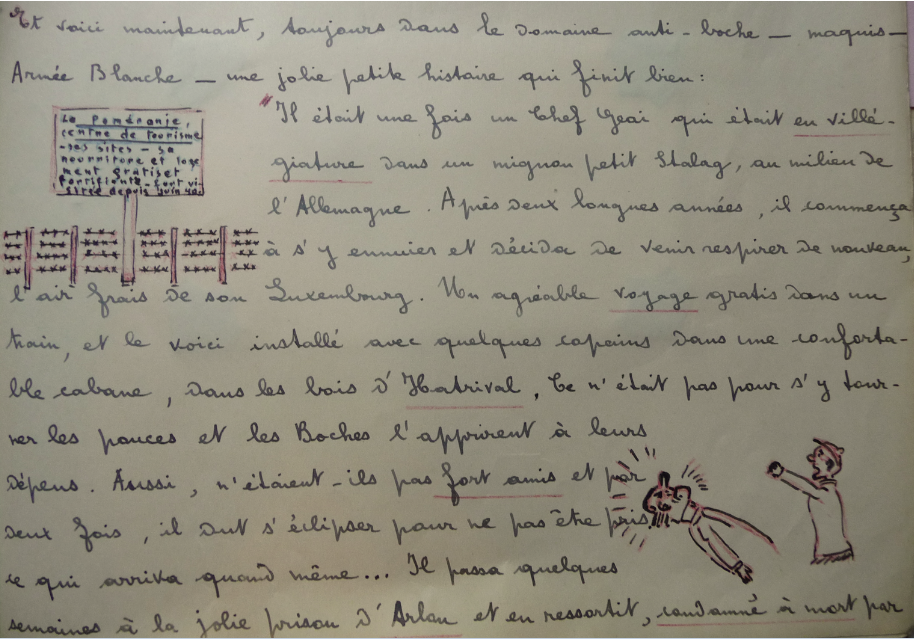 Et voici maintenant, toujours dans le domaine anti-boche — maquis —
Armée Blanche — une jolie petite histoire qui finit bien :
La Poméranie,
centre de tourisme
- ses sites - sa
nourriture et loge
ment gratis et
fortifiants - Sont vi-
sites depuis juin 40.
"Il était une fois un Chef Geai qui était en villé-
giature dans un mignon petit Stalag, au milieu de
l'Allemagne. Après deux longues années, il commença
à s'y ennuier et décida de venir respirer de nouveau,
l'air frais de son Luxembourg. Un agréable voyage gratis dans un
train, et le voici installé avec quelques copains dans une conforta-
ble cabane, dans les bois d'Hatrival. Ce n'était pas pour s'y tour-
ner les pouces et les Boches l'apprirent à leurs
dépens. Aussi, n'étaient-ils pas fort amis et par
deux fois, il dut s'éclipser pour ne pas être pris,
ce qui arriva quand même... Il passa quelques
semaines à la jolie prison d'Arlon et en ressortit, condamné à mort par